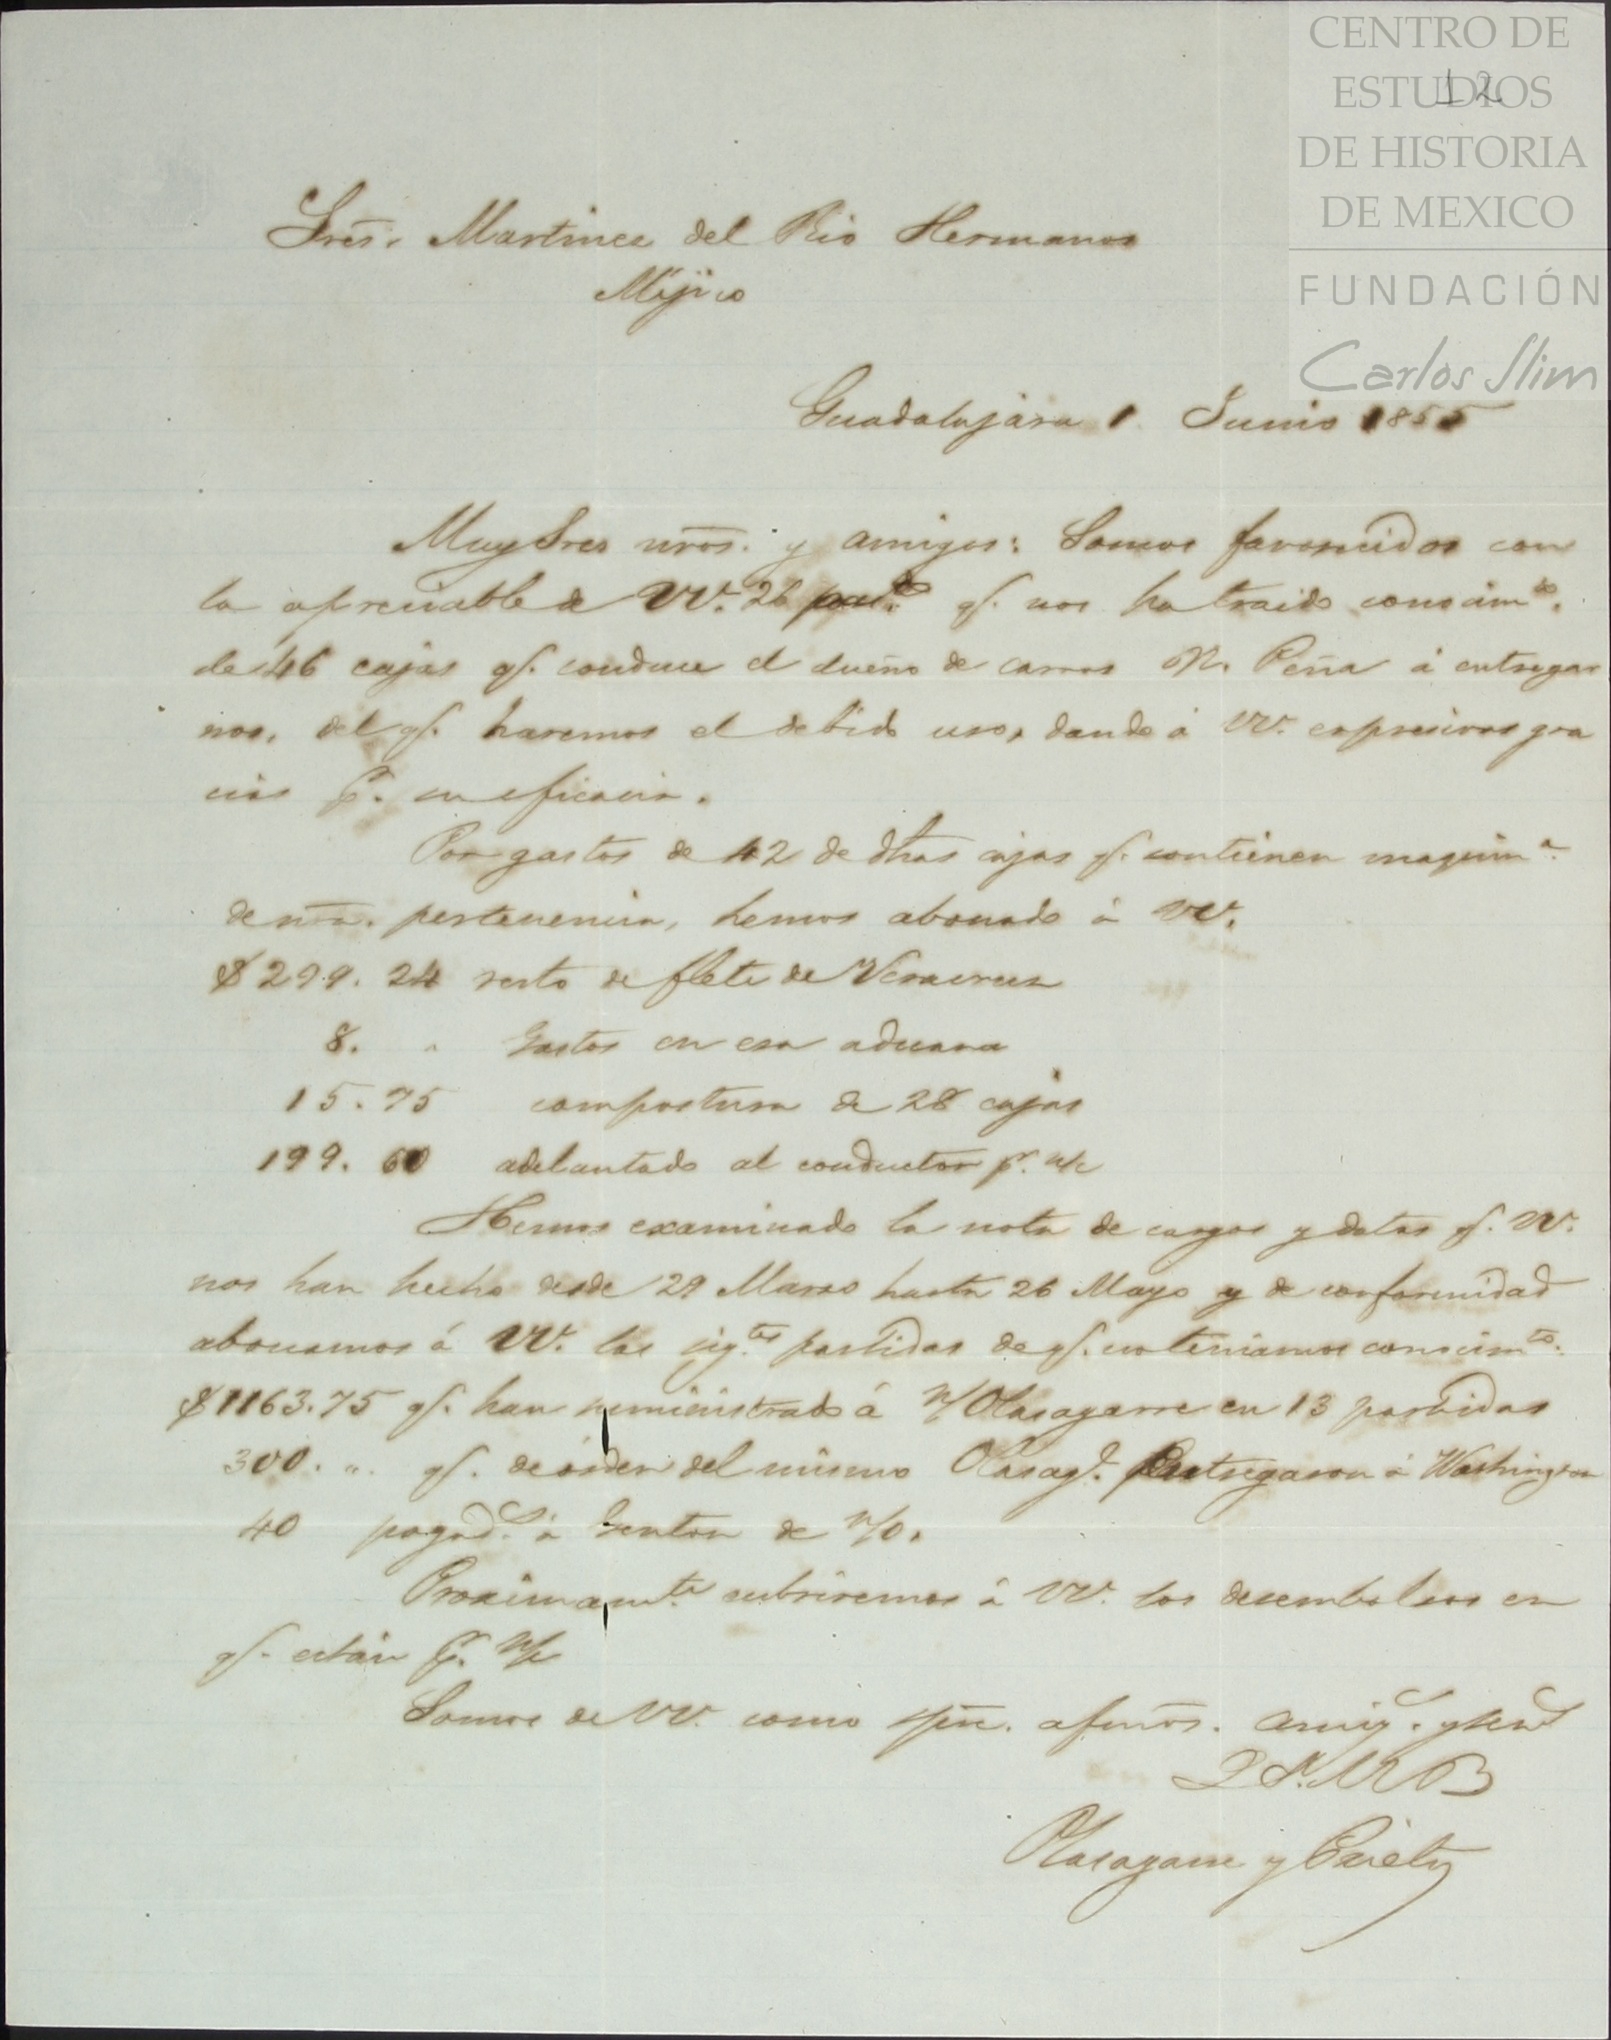 CENTRO DE
ESTUDIOS
DE HISTORIA
DE MEXICO
FUNDACIÓN
Carlos Slim
12
Sres. Martinez del Rio Hermanos
Méjico
Guadalajara 1 Junio 1855
Muy Sres nros. y amigos: Somos favorecidos con
la apreciable de VV. 26 pasdo. q. nos ha traido conocimto.
de 46 cajas q. conduce el dueño de carros N. Peña á entregar
nos, del q. haremos el debido uso, dando á VV. expresivas gra
cias p. su eficacia.
Por gastos de 42 de dhas cajas q. contienen maquina.
de nra. pertenencia, hemos abonado á VV.
$299. 24 resto de flete de Veracruz
8. " Gastos en esa aduana
15. 75 compostura de 28 cajas
199. 60 adelantado al conductor pr. n/c
Hemos examinado la nota de cargos y datas q. VV.
nos han hecho desde 29 Marzo hasta 26 Mayo y de conformidad
abonamos á VV. las sigtes. partidas de q. no teniamos conocimto.
$1163.75 q. han suministrado á n/ Olasagarre en 13 partidas
300. " q. de órden del mismo Olasage. Entregaron á Washington
40 pagads. á de n/o.
Proximamte. cubriremos á VV. los desembolsos en
q. están p. n/c
Somos de VV. como spre. afmos. amigs. y serv
Q S. M B
Olasagarre y Prieto